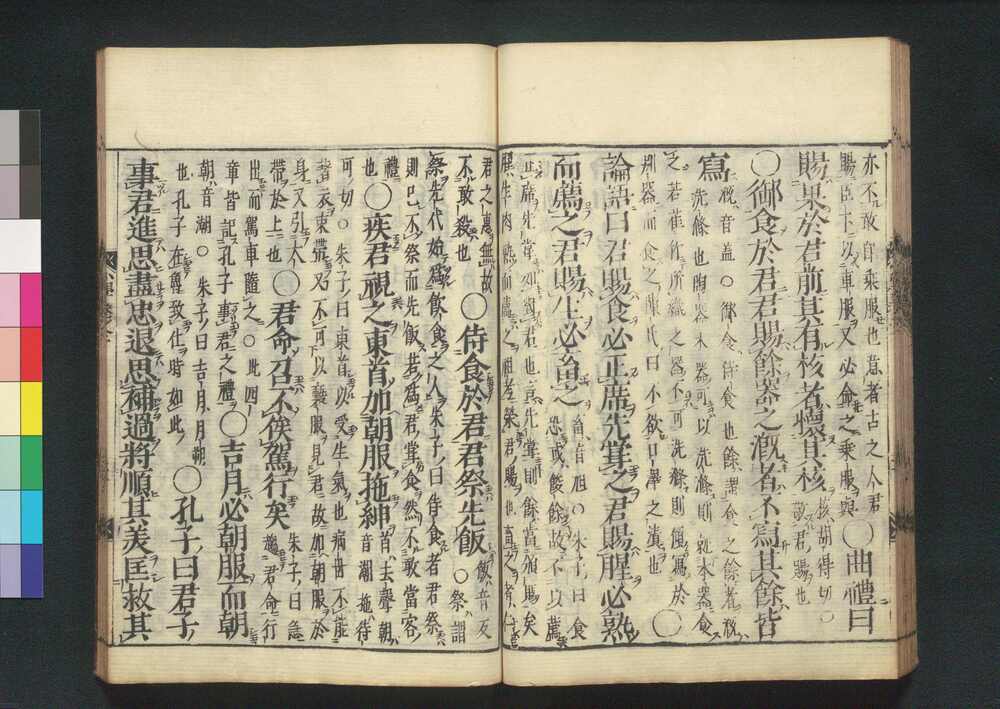 亦不敢自乘服也意者古之人君
賜臣下以車服又必命之乘服與
○曲禮曰
賜果於君前其有核者懷其核
核胡得切○
敬君賜也
○御食於君君賜餘器之漑者不寫其餘皆
寫
漑音蓋○御食侍食也餘謂食之餘者漑
洗滌也陶器木器可以洗滌則就本器食
之若萑竹所織之器不可洗滌則傾瀉於
別器而食之陳氏曰不欲口澤之瀆也
○
論語曰君賜食必正席先嘗之君賜腥必熟
而薦之君賜生必畜之
畜音旭○朱子曰食
恐或餕餘故不以薦
正席先嘗如對君也言先嘗則餘當頒賜矣
腥生肉熟而薦之祖考榮君賜也畜之者仁
君之惠無故
不敢殺也
○侍食於君君祭先飯
飯音反
○祭謂
祭先代始爲飲食之人朱子曰侍食者君祭
則已不祭而先飯若爲君嘗食然不敢當客
禮
也
○疾君視之東首加朝服拖紳
首去聲朝
音潮拖待
可切○朱子曰東首以受生氣也病卧不能
著衣束帶又不可以褻服見君故加朝服於
身又引大
帶於上也
○君命召不俟駕行矣
朱子曰急
趨君命行
出而駕車隨之○此四
章皆記孔子事君之禮
○吉月必朝服而朝
朝音潮○朱子曰吉月月朔
也孔子在魯致仕時如此
○孔子曰君子
事君進思盡忠退思補過將順其美匡救其